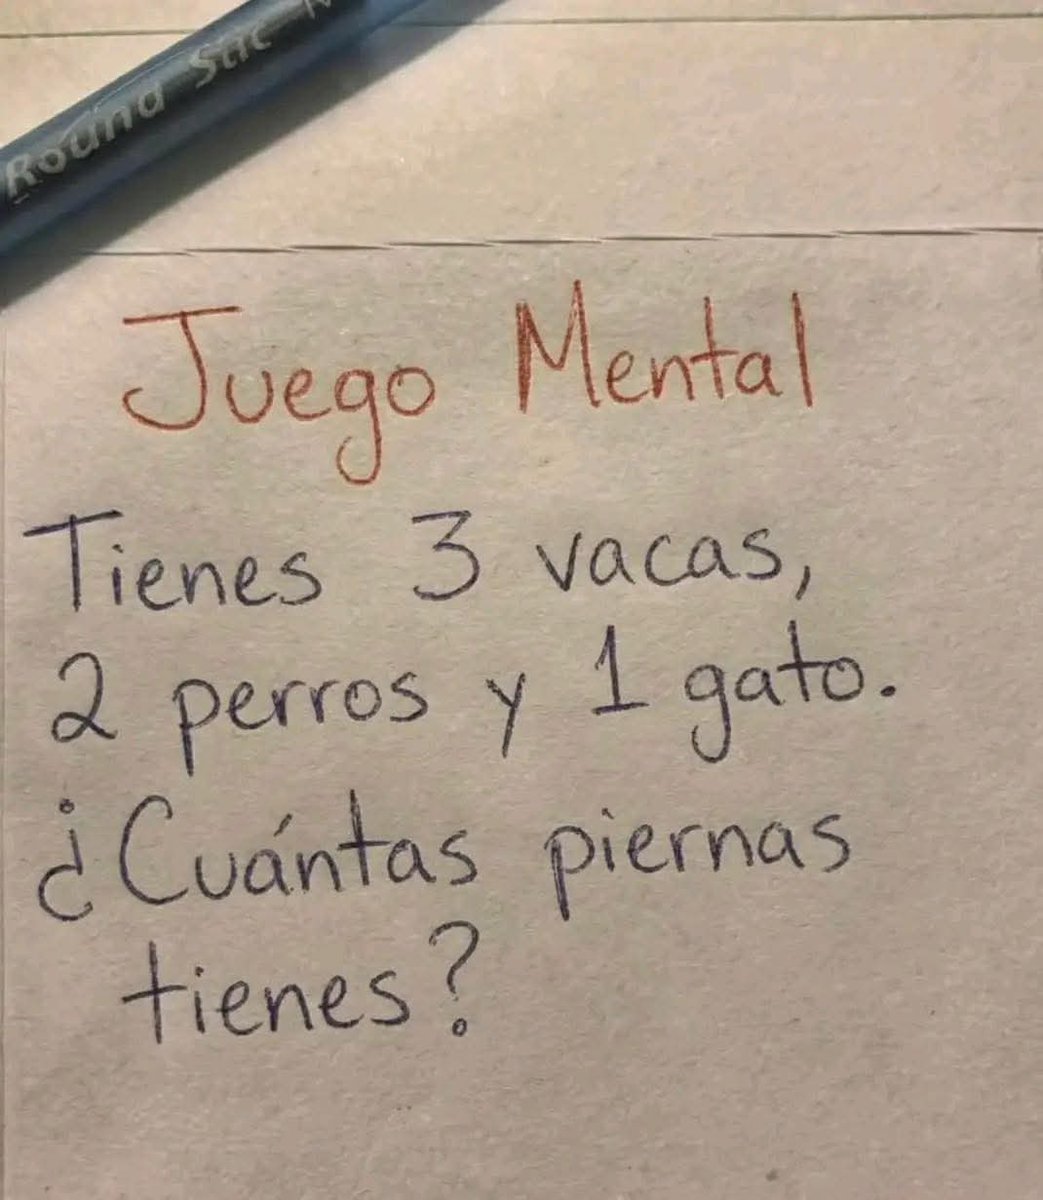 Round Stic
Juego Mental
Tienes 3 vacas,
2 perros y 1 gato.
¿Cuántas piernas
tienes?